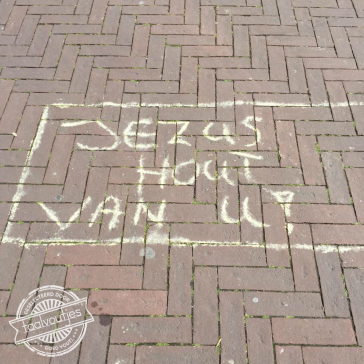 JEZUS
HOUT
VAN U!
taalvoutjes